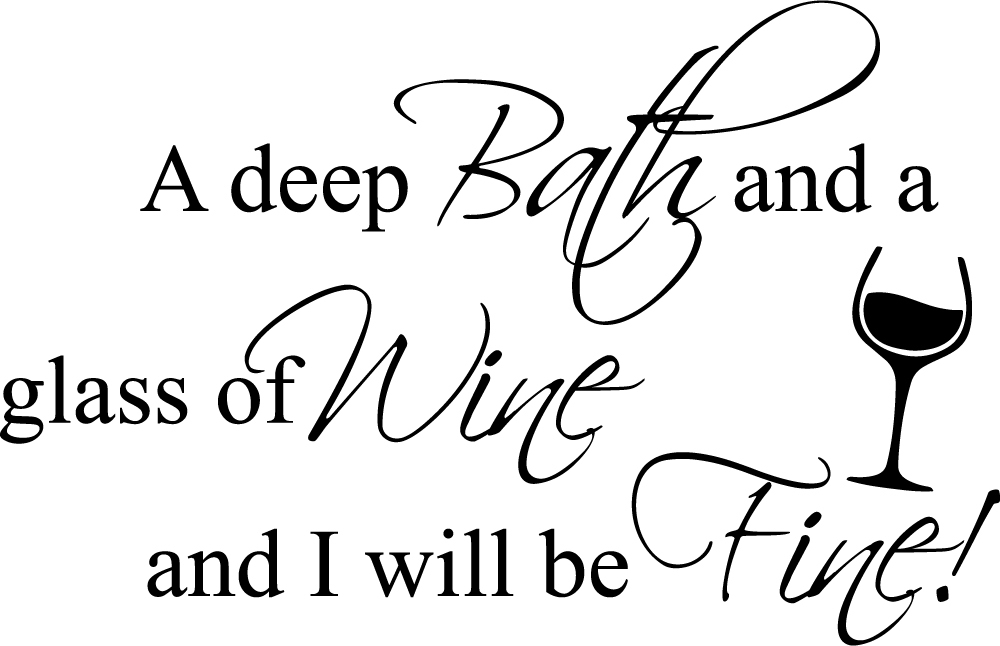 A deep Bath and a
glass of Wine
and I will be Fine!